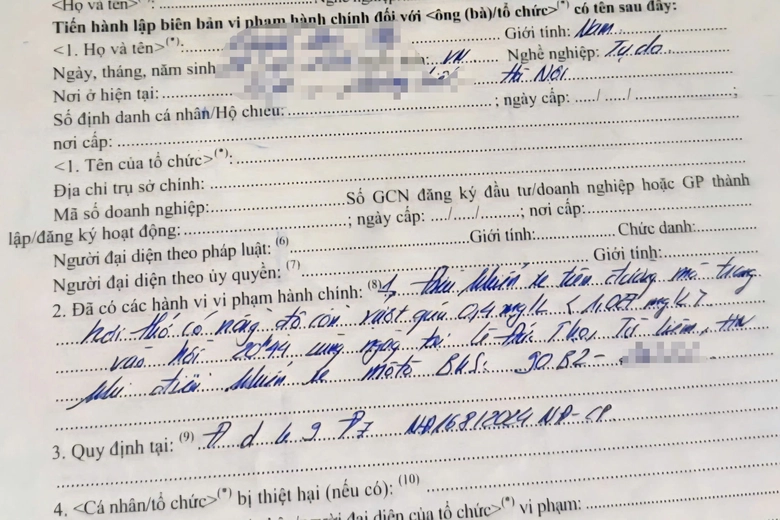 <Họ và tên>(*):
Tiến hành lập biên bản vi phạm hành chính đối với <ông (bà)/tổ chức>(*) có tên sau đây:
<1. Họ và tên>(*): Giới tính: Nam
Ngày, tháng, năm sinh VN Nghề nghiệp: Tự do
Nơi ở hiện tại: Hà Nội
Số định danh cá nhân/Hộ chiếu: ; ngày cấp: ..../..../ ;
nơi cấp:
<1. Tên của tổ chức>(*):
Địa chỉ trụ sở chính:
Mã số doanh nghiệp: Số GCN đăng ký đầu tư/doanh nghiệp hoặc GP thành
lập/đăng ký hoạt động: ; ngày cấp: ..../..../ ; nơi cấp:
Người đại diện theo pháp luật: (6) Giới tính: Chức danh:
Người đại diện theo ủy quyền: (7) Giới tính:
2. Đã có các hành vi vi phạm hành chính: (8) 1, Điều khiển xe trên đường mà trong
hơi thở có nồng độ cồn vượt quá 0,4 mg/L (1,007 mg/L)
vào hồi 20h44 cùng ngày tại Lê Đức Thọ, Từ Liêm, HN
khi điều khiển xe môtô BKS: 90B2-
3. Quy định tại: (9) d k 9 Đ7 NĐ168/2024 NĐ-CP
4. <Cá nhân/tổ chức>(*) bị thiệt hại (nếu có): (10)
đại diện của tổ chức>(*) vi phạm: